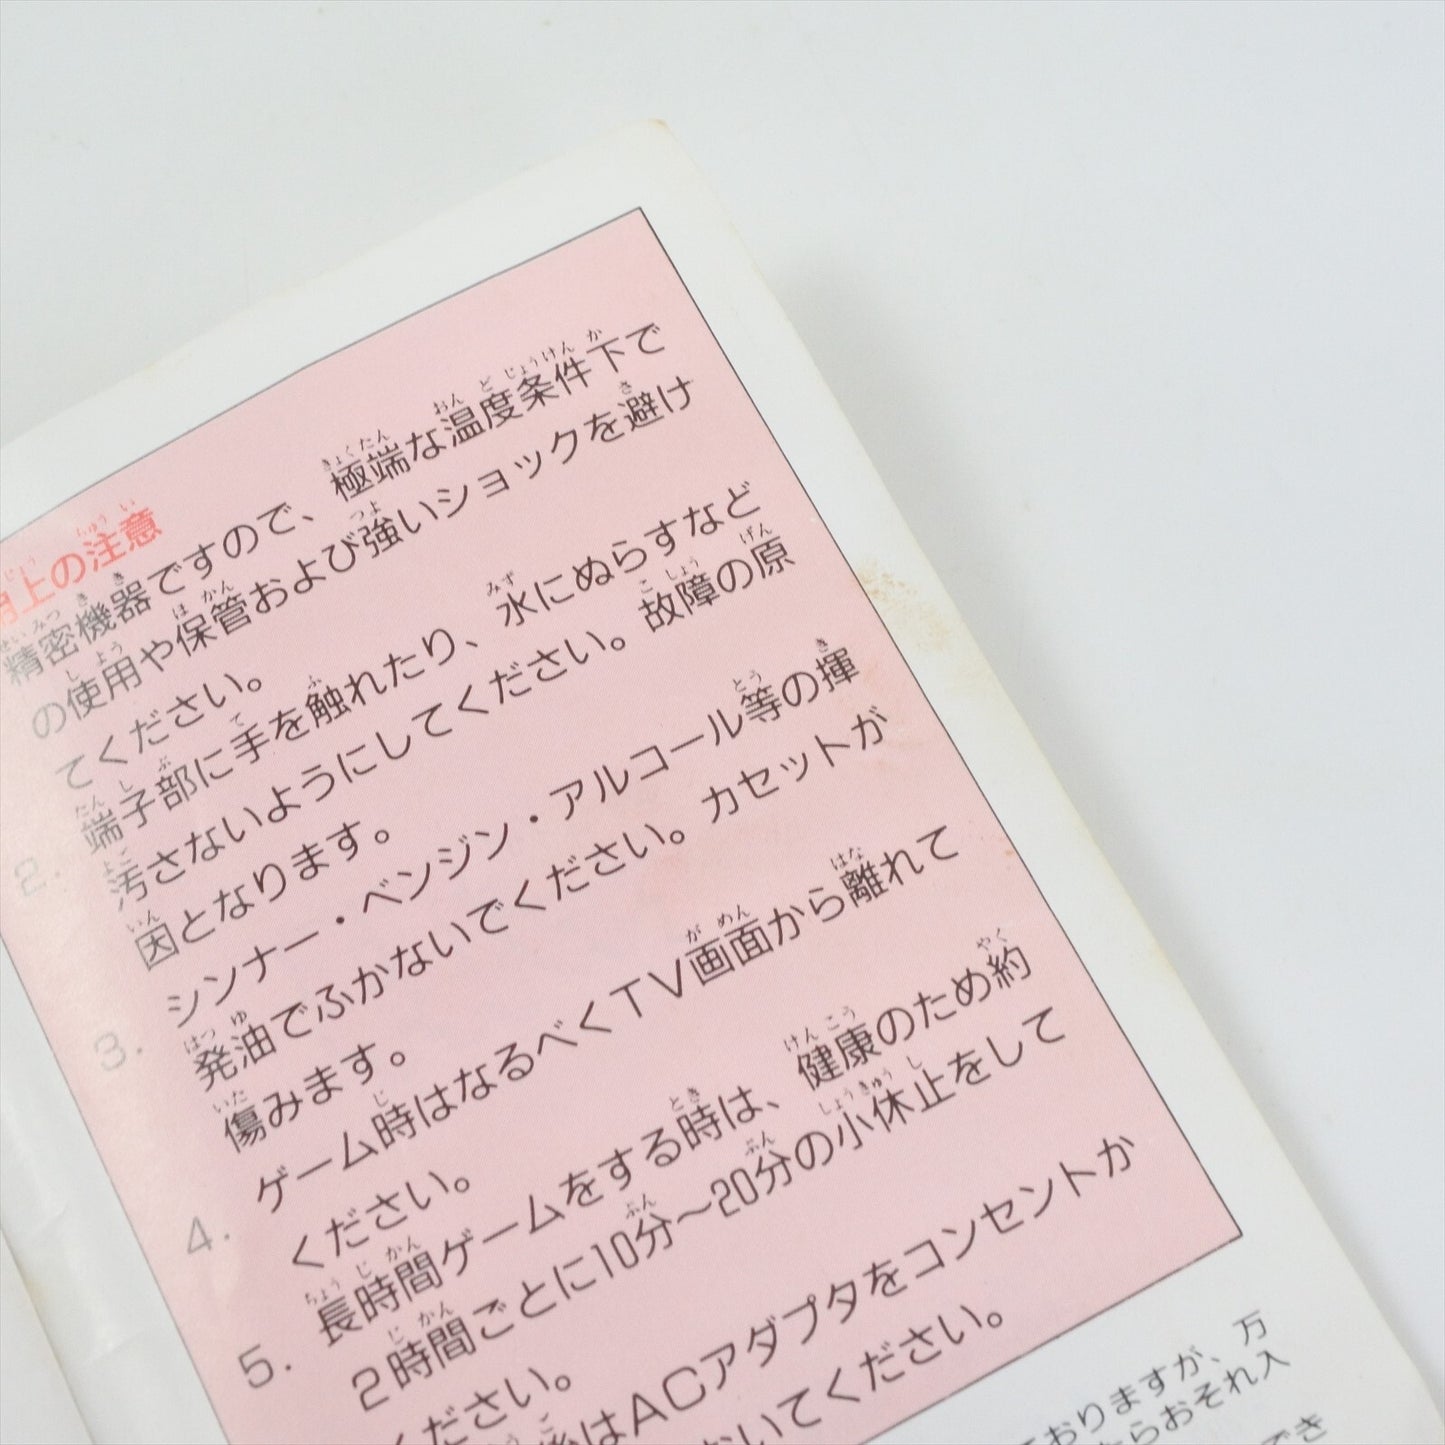 用上の注意
精密機器ですので、極端な温度条件下で
の使用や保管および強いショックを避け
てください。
2. 端子部に手を触れたり、水にぬらすなど
汚さないようにしてください。故障の原
因となります。
3. シンナー・ベンジン・アルコール等の揮
発油でふかないでください。カセットが
傷みます。
4. ゲーム時はなるべくTV画面から離れて
ください。
5. 長時間ゲームをする時は、健康のため約
2時間ごとに10分〜20分の小休止をして
ください。
後はACアダプタをコンセントか
おいてください。
ておりますが、万
たらおそれ入
でき